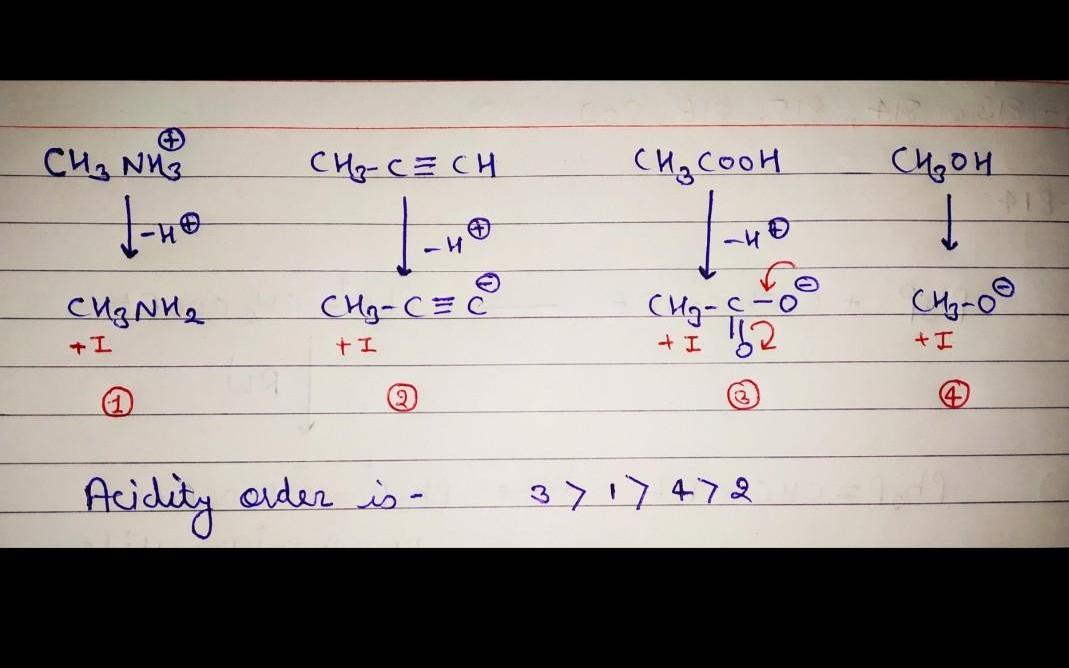 CH₃NH₃⊕ CH₃-C≡CH CH₃COOH CH₃OH
↓-H⊕ ↓-H⊕ ↓-H⊕ ↓
CH₃NH₂ CH₃-C≡C⊖ CH₃-C-O⊖ CH₃-O⊖
+I +I +I O +I
① ② ③ ④
Acidity order is - 3 > 1 > 4 > 2